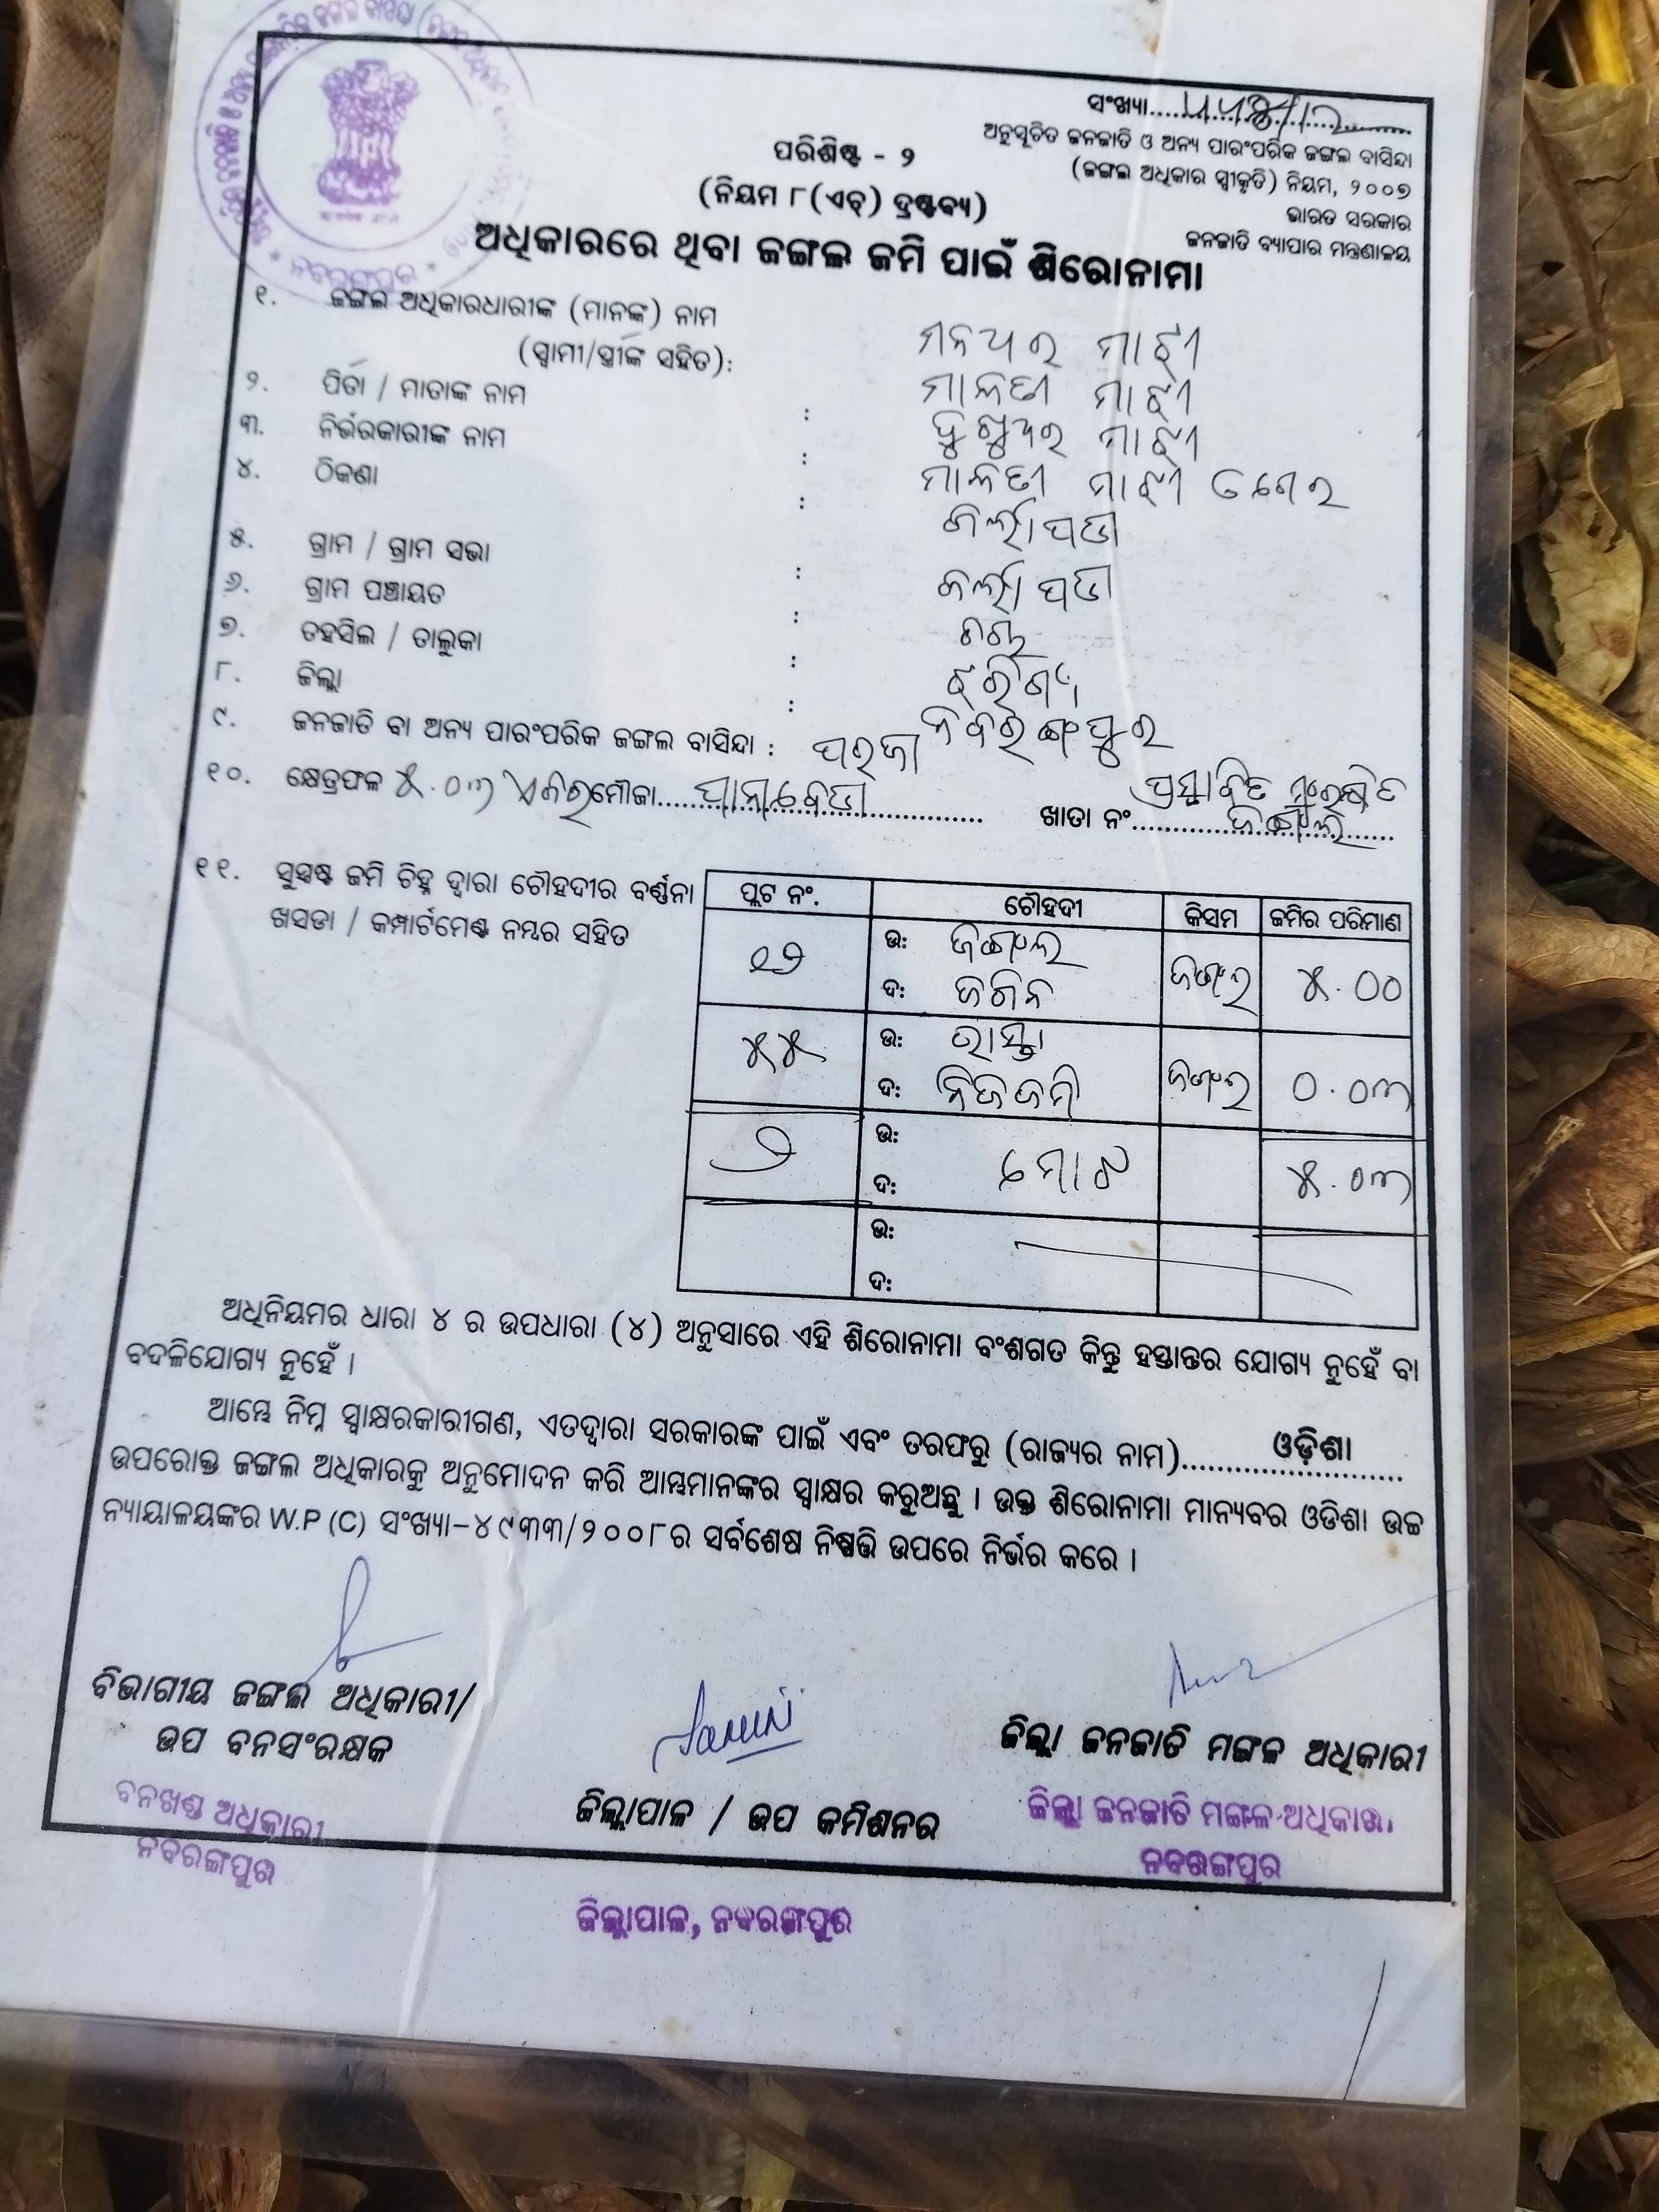 ସଂଖ୍ୟା
ଅନୁସୂଚିତ ଜନଜାତି ଓ ଅନ୍ୟ ପାରଂପରିକ ଜଙ୍ଗଲ ବାସିନ୍ଦା
(ଜଙ୍ଗଲ ଅଧିକାର ସ୍ୱୀକୃତି) ନିୟମ, ୨୦୦୭
ଭାରତ ସରକାର
ଜନଜାତି ବ୍ୟାପାର ମନ୍ତ୍ରଣାଳୟ
ପରିଶିଷ୍ଟ - ୨
(ନିୟମ ୮(ଏଚ୍) ଦ୍ରଷ୍ଟବ୍ୟ)
ଅଧିକାରରେ ଥିବା ଜଙ୍ଗଲ ଜମି ପାଇଁ ଶିରୋନାମା
୧. ଜଙ୍ଗଲ ଅଧିକାରଧାରୀଙ୍କ (ମାନଙ୍କ) ନାମ
(ସ୍ୱାମୀ/ସ୍ତ୍ରୀଙ୍କ ସହିତ): ମାଝୀ
ମାଳତୀ ମାଝୀ
୨. ପିତା / ମାତାଙ୍କ ନାମ : ମାଝୀ
୩. ନିର୍ଭରକାରୀଙ୍କ ନାମ : ମାଳତୀ ମାଝୀ
୪. ଠିକଣା :
୫. ଗ୍ରାମ / ଗ୍ରାମ ସଭା :
୬. ଗ୍ରାମ ପଞ୍ଚାୟତ :
୭. ତହସିଲ / ତାଲୁକା : ଝରିଗାଁ
୮. ଜିଲ୍ଲା : ନବରଙ୍ଗପୁର
୯. ଜନଜାତି ବା ଅନ୍ୟ ପାରଂପରିକ ଜଙ୍ଗଲ ବାସିନ୍ଦା : ପରଜା
୧୦. କ୍ଷେତ୍ରଫଳ ୫.୦୩ ଏକର ମୌଜା ଖାତା ନଂ ପ୍ରସ୍ତାବିତ ସଂରକ୍ଷିତ
ଜଙ୍ଗଲ
୧୧. ସୁସ୍ପଷ୍ଟ ଜମି ଚିହ୍ନ ଦ୍ୱାରା ଚୌହଦୀର ବର୍ଣ୍ଣନା
ଖସଡା / କମ୍ପାର୍ଟମେଣ୍ଟ ନମ୍ବର ସହିତ
ପ୍ଲଟ ନଂ. ଚୌହଦୀ କିସମ ଜମିର ପରିମାଣ
ଉ: ଜଙ୍ଗଲ
ଦ: ଜଙ୍ଗଲ ୫.୦୦
୫୫ ଉ: ରାସ୍ତା
ଦ: ନିଜଜମି ଜଙ୍ଗଲ ୦.୦୩
୨ ଉ:
ଦ: ମୋଟ ୫.୦୩
ଉ:
ଦ:
ଅଧିନିୟମର ଧାରା ୪ ର ଉପଧାରା (୪) ଅନୁସାରେ ଏହି ଶିରୋନାମା ବଂଶଗତ କିନ୍ତୁ ହସ୍ତାନ୍ତର ଯୋଗ୍ୟ ନୁହେଁ ବା
ବଦଳିଯୋଗ୍ୟ ନୁହେଁ ।
ଆମ୍ଭେ ନିମ୍ନ ସ୍ୱାକ୍ଷରକାରୀଗଣ, ଏତଦ୍ୱାରା ସରକାରଙ୍କ ପାଇଁ ଏବଂ ତରଫରୁ (ରାଜ୍ୟର ନାମ) ଓଡ଼ିଶା
ଉପରୋକ୍ତ ଜଙ୍ଗଲ ଅଧିକାରକୁ ଅନୁମୋଦନ କରି ଆମ୍ଭମାନଙ୍କର ସ୍ୱାକ୍ଷର କରୁଅଛୁ । ଉକ୍ତ ଶିରୋନାମା ମାନ୍ୟବର ଓଡିଶା ଉଚ୍ଚ
ନ୍ୟାୟାଳୟଙ୍କର W.P (C) ସଂଖ୍ୟା-୪୯୩୩/୨୦୦୮ର ସର୍ବଶେଷ ନିଷ୍ପତ୍ତି ଉପରେ ନିର୍ଭର କରେ ।
ବିଭାଗୀୟ ଜଙ୍ଗଲ ଅଧିକାରୀ/
ଉପ ବନସଂରକ୍ଷକ
ବନଖଣ୍ଡ ଅଧିକାରୀ
ନବରଙ୍ଗପୁର
ଜିଲ୍ଲାପାଳ / ଉପ କମିଶନର
ଜିଲ୍ଲାପାଳ, ନବରଙ୍ଗପୁର
ଜିଲ୍ଲା ଜନଜାତି ମଙ୍ଗଳ ଅଧିକାରୀ
ଜିଲ୍ଲା ଜନଜାତି ମଙ୍ଗଳ ଅଧିକାରୀ
ନବରଙ୍ଗପୁର